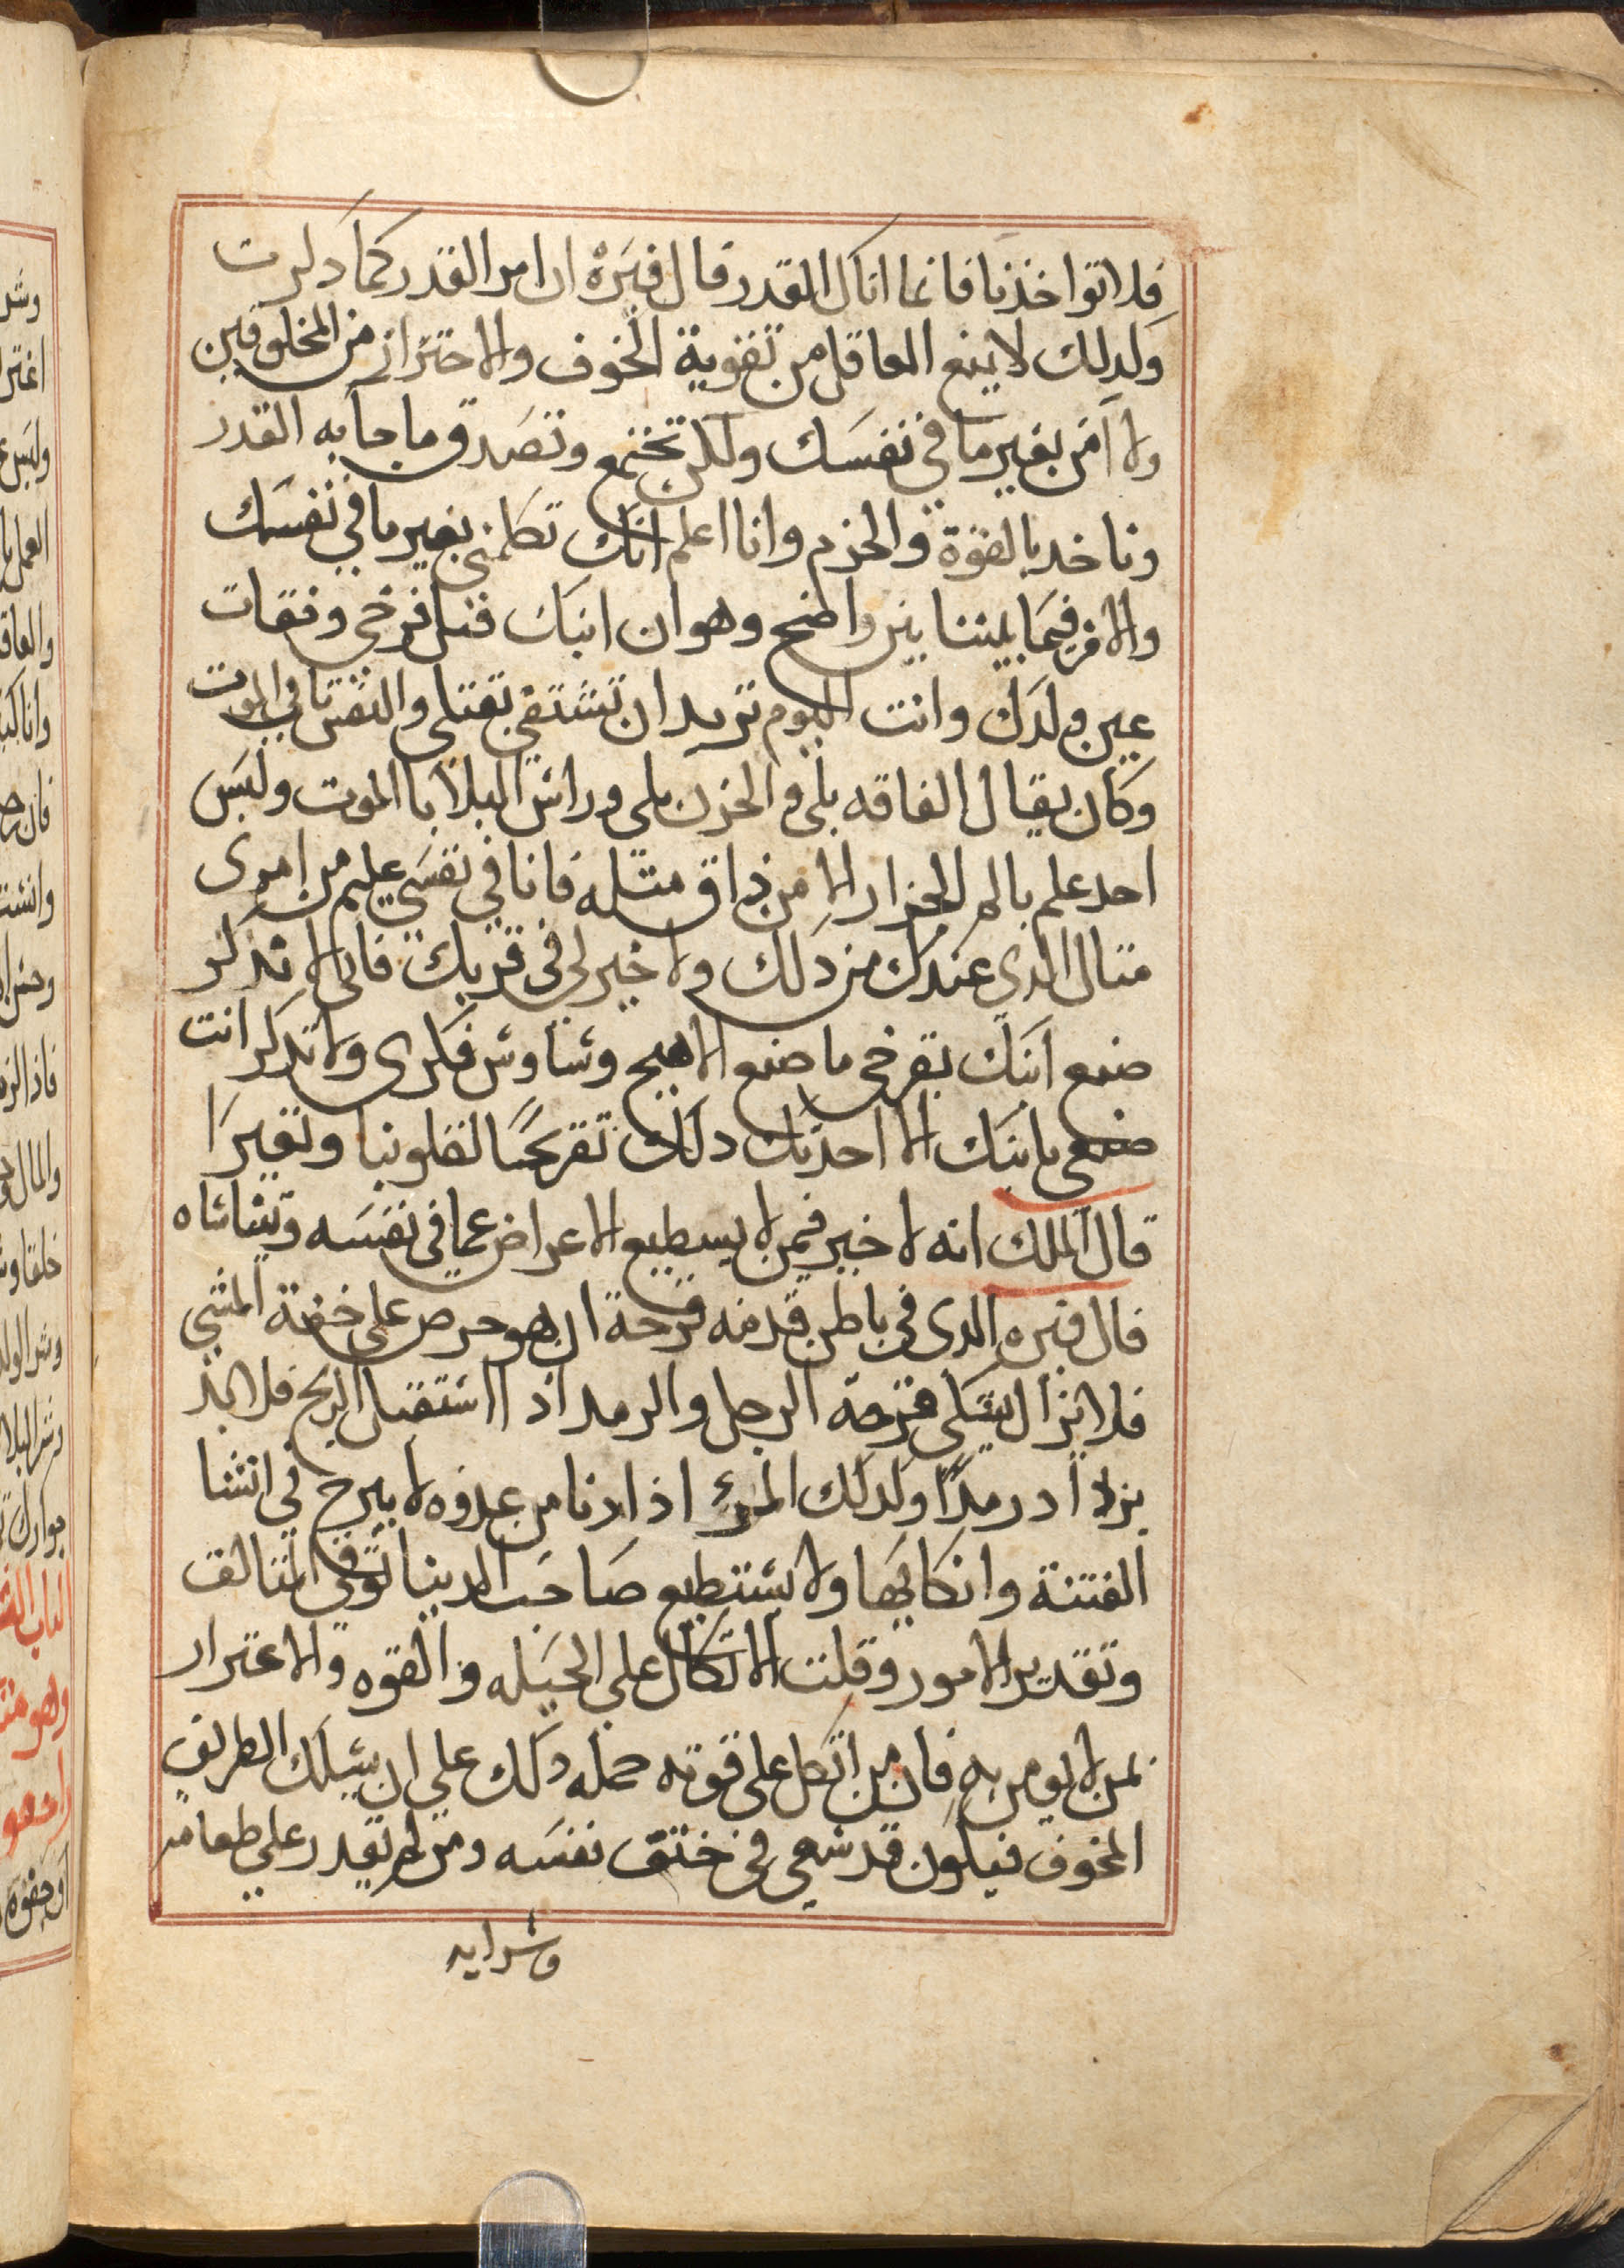 فلا تواخذنا فانما اتاك القدر قال فنزه ان امر القدر كما دكرت
ولدلك لا يمنع العاقل من تقوية الخوف والاحتراز من المخلوقين
ولا امن بغير ما في نفسك ولكن تختمع وتصدق ما جا به القدر
وناخد بالقوة والحزم وانا اعلم انك تكلمني بغير ما في نفسك
والامر فيما بيننا بين واضح وهو ان ابنك قتل فرخي وفقات
عين ولدك وانت اليوم تريد ان تشتفي بقتلي والنفس تابي الموت
وكان يقال الفاقه بلي والحزن بلي وراس البلايا الموت وليس
احد علم بالم الجزار الا من ذاق مثله فانا في نفسي عليم من امري
مثال الدي عندك من دلك ولا خير لي في قربك فاني لا تدكر
صنع ابنك بفرخي ما صنع الا هيج وشاوش فكري ولا تدكر انت
صنعي بابنك الا احدتك دلك تقريحا لقلوبنا وتغيرا
قال الملك انه لا خير فيمن لا يسطيع الاعراض عما في نفسه ويتناساه
قال فنزه الدي في باطن قدمه قرحة ان هو حرص علي خفة المشي
فلا يزال يشكي قرحة الرجل والرمد اذ ااستقبل الريح فلا بد
يزداد رمدا ولدلك المرؤ اذا دنا من عدوه لا يبرح في انشا
الفتنة وانكايها ولا يستطيع صاحب الدينا توقي المتالف
وتقدير الامور وقلت الاتكال علي الحيله والقوه والاغترار
بمن لا يومن به فان من اتكل علي قوته حمله دلك علي ان يسلك الطريق
المخوف فيكون قد سعي في خنق نفسه ومن لم يقدر علي طعامه
وشرابه